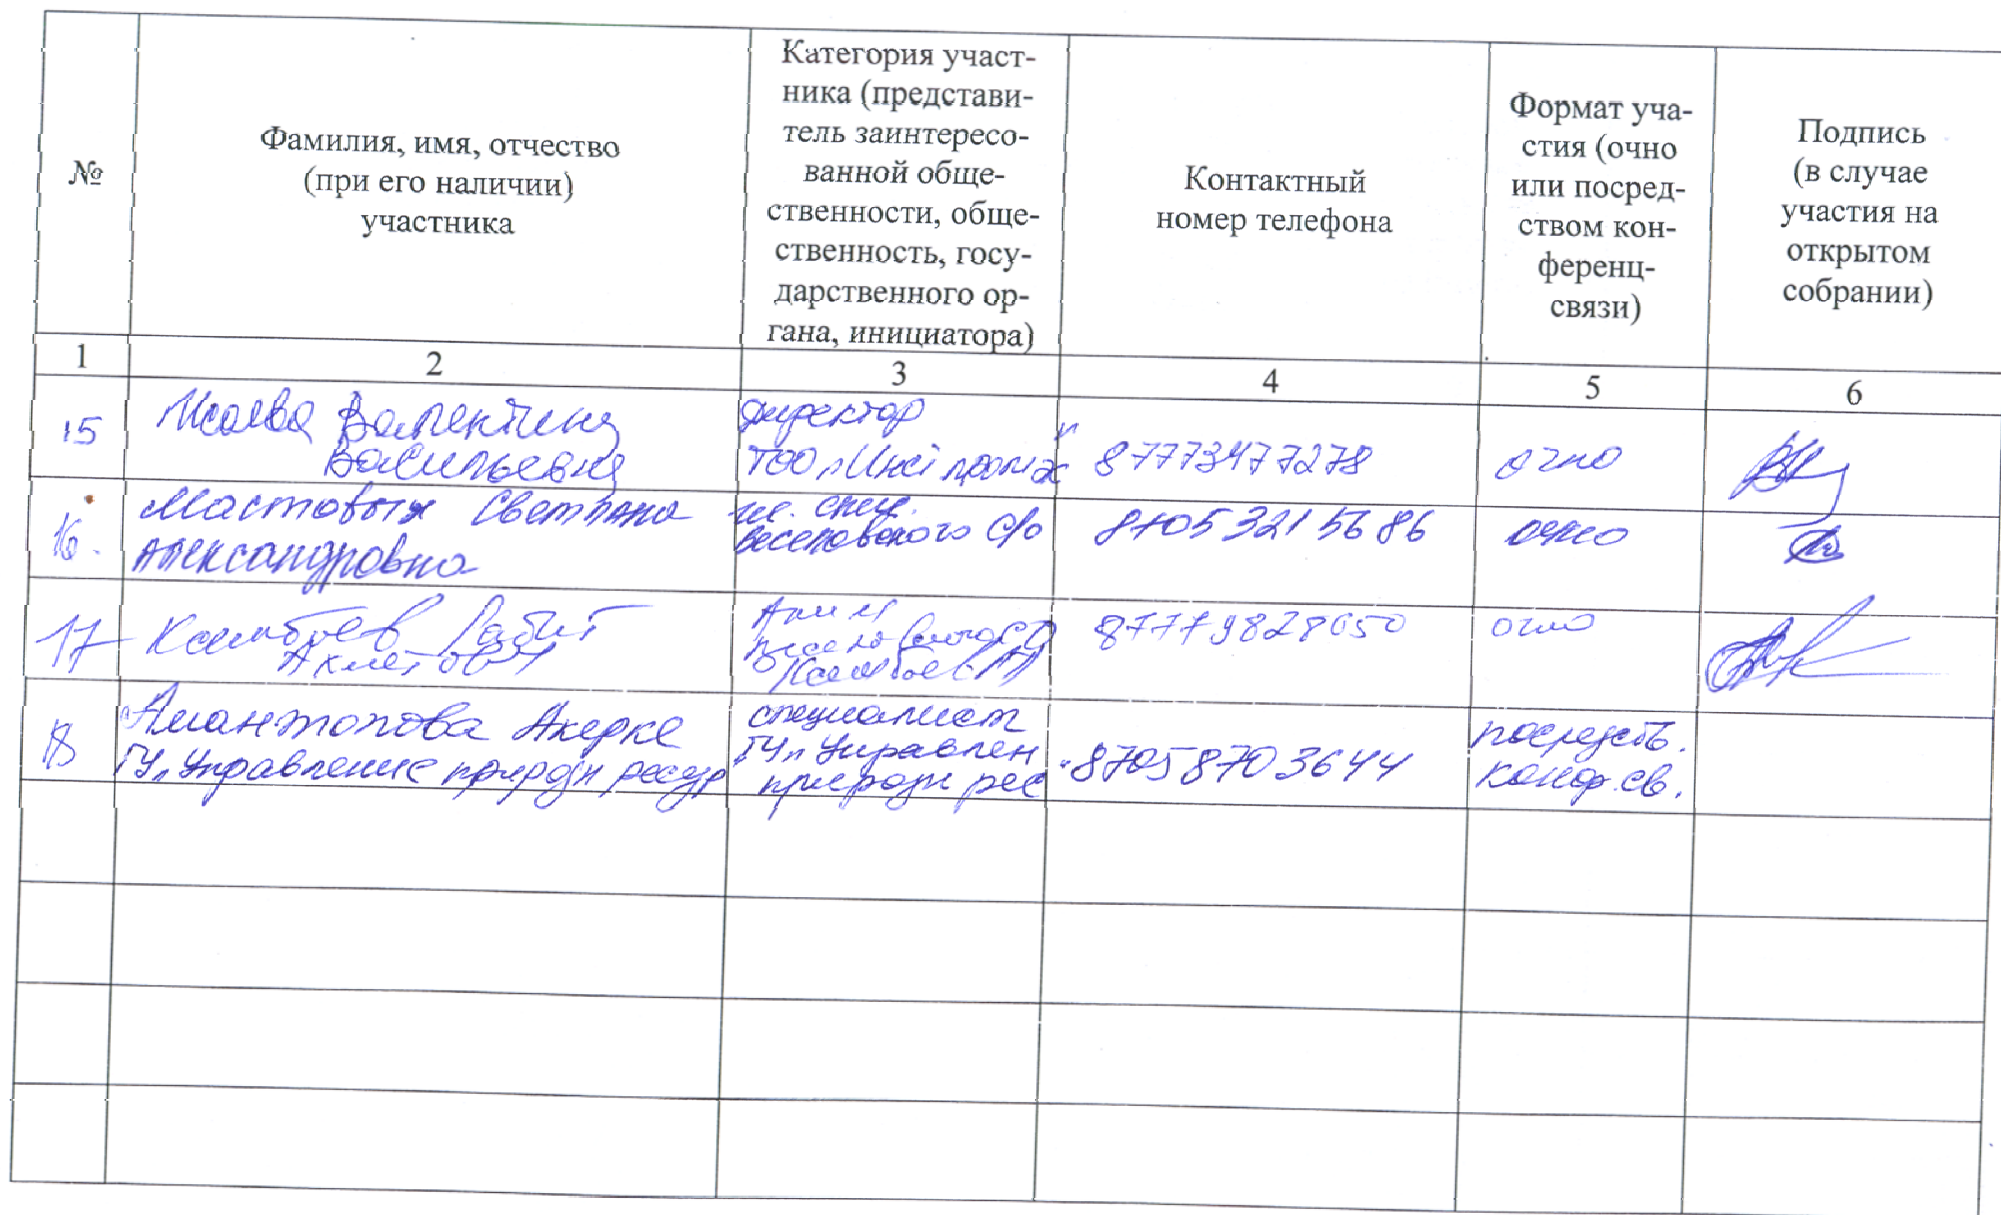 №
Фамилия, имя, отчество
(при его наличии)
участника
Категория участ-
ника (представи-
тель заинтересо-
ванной обще-
ственности, обще-
ственность, госу-
дарственного ор-
гана, инициатора)
Контактный
номер телефона
Формат уча-
стия (очно
или посред-
ством кон-
ференц-
связи)
Подпись
(в случае
участия на
открытом
собрании)
1 2 3 4 5 6
15
Исаева Валентина
Васильевна
директор
ТОО
87773477278
очно
16.
Мастовых Светлана
Александровна
гл. спец.
Веселовского с/о
87053215686
очно
17
Рабит
Ахметович
Аким
87779828050
очно
18
Амантопова Акерке
ГУ "Управление природн ресур
специалист
ГУ "Управлен
природн рес
87058703644
посредств.
конф.св.